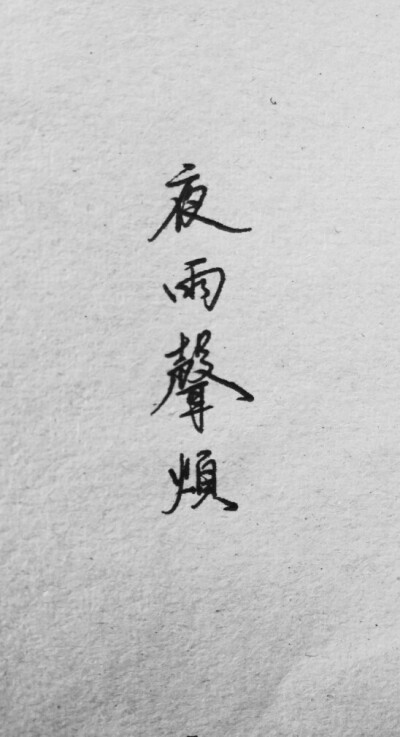 夜雨聲煩